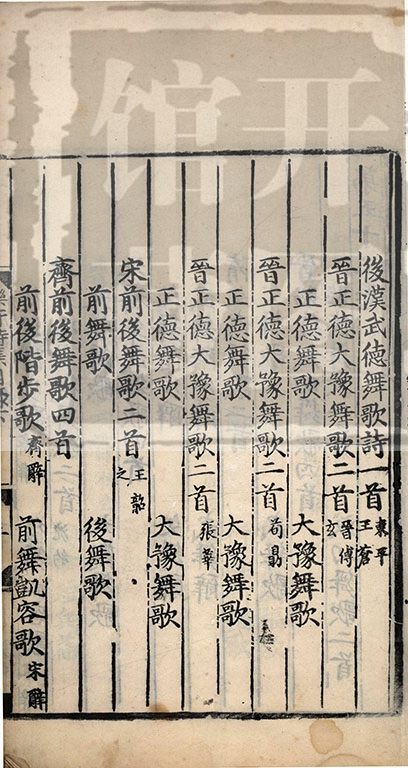 後漢武德舞歌詩一首 東平王蒼
晉正德大豫舞歌二首 晉傅玄
正德舞歌 大豫舞歌
晉正德大豫舞歌二首 荀勗
正德舞歌 大豫舞歌
晉正德大豫舞歌二首 張華
正德舞歌 大豫舞歌
宋前後舞歌二首 王韶之
前舞歌 後舞歌
齊前後舞歌四首
前後階步歌 齊辭 前舞凱容歌 宋辭
开
馆